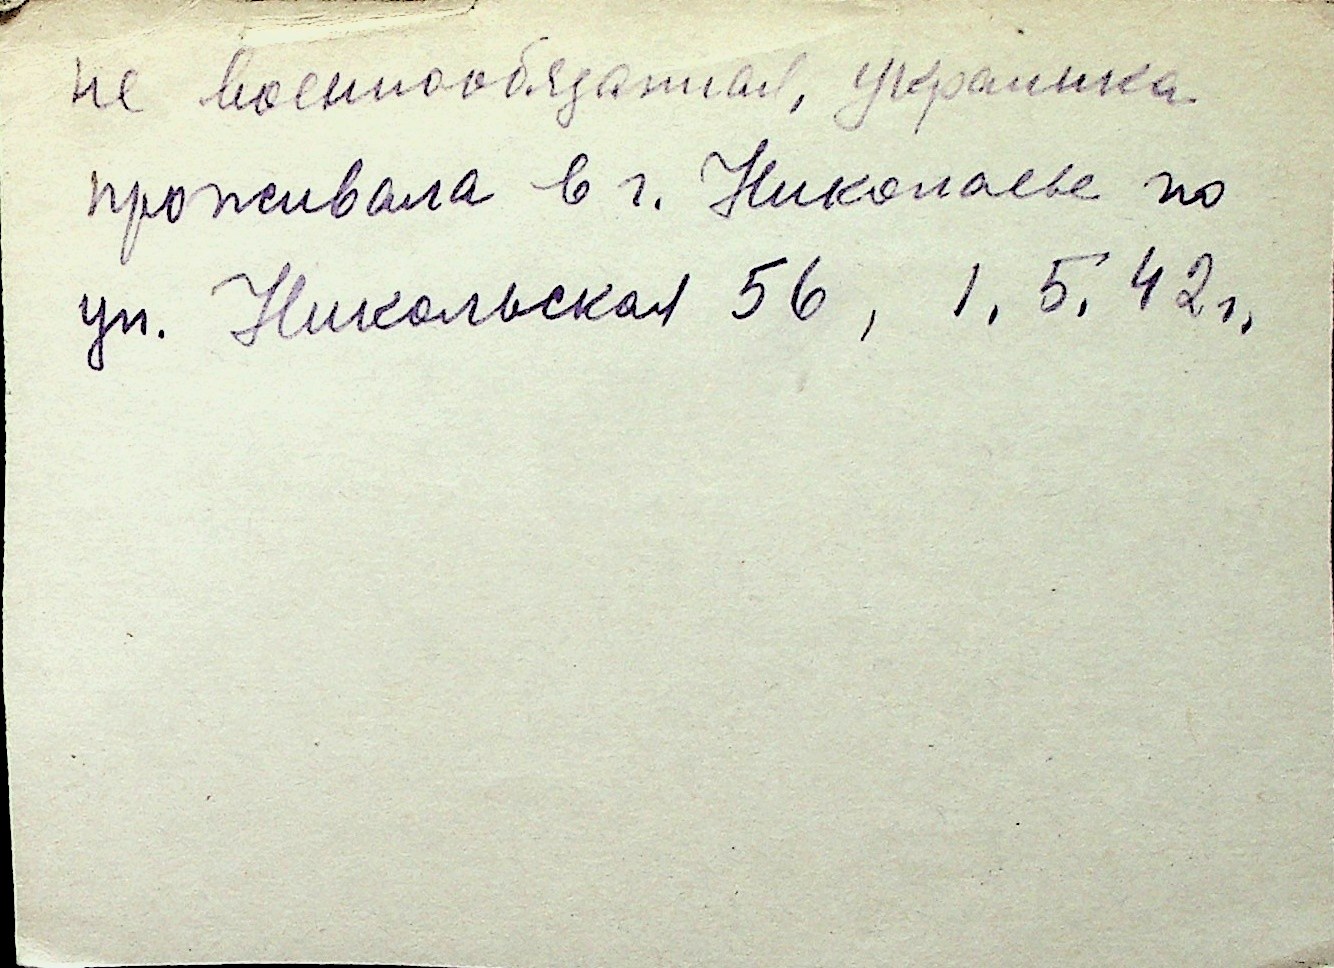 не военнообязаная, украинка
проживала в г. Николаеве по
ул. Никольская 56, 1.5.42г.